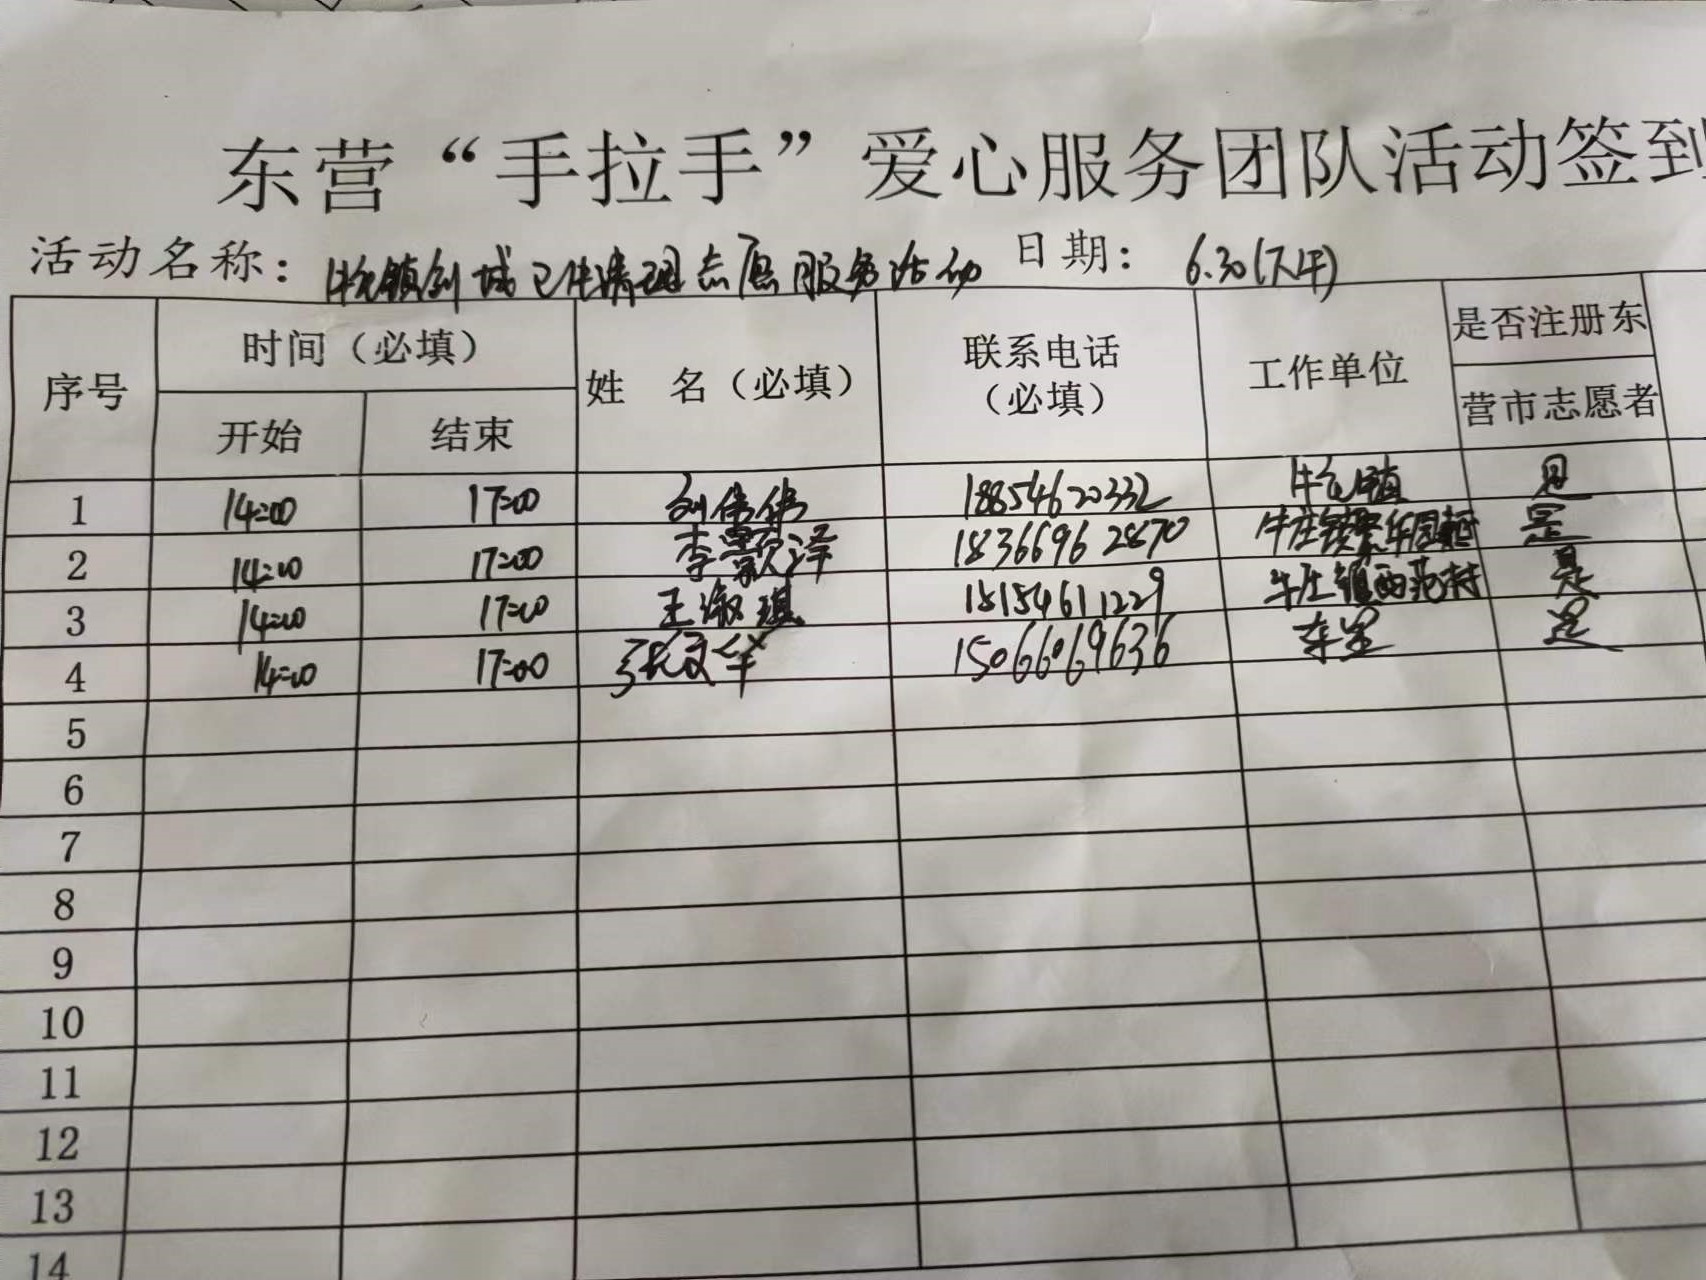 东营“手拉手”爱心服务团队活动签到
活动名称：牛庄镇创城卫生清理志愿服务活动 日期： 6.30(下午)
序号 时间（必填） 姓 名（必填） 联系电话（必填） 工作单位 是否注册东营市志愿者
开始 结束
1 14:00 17:00 刘伟伟 18854620332 牛庄镇 是
2 14:00 17:00 李颢泽 18366962870 牛庄镇 是
3 14:00 17:00 王淑琪 15154611229 牛庄镇西范村 是
4 14:00 17:00 张文华 15066069636 是
5
6
7
8
9
10
11
12
13
14